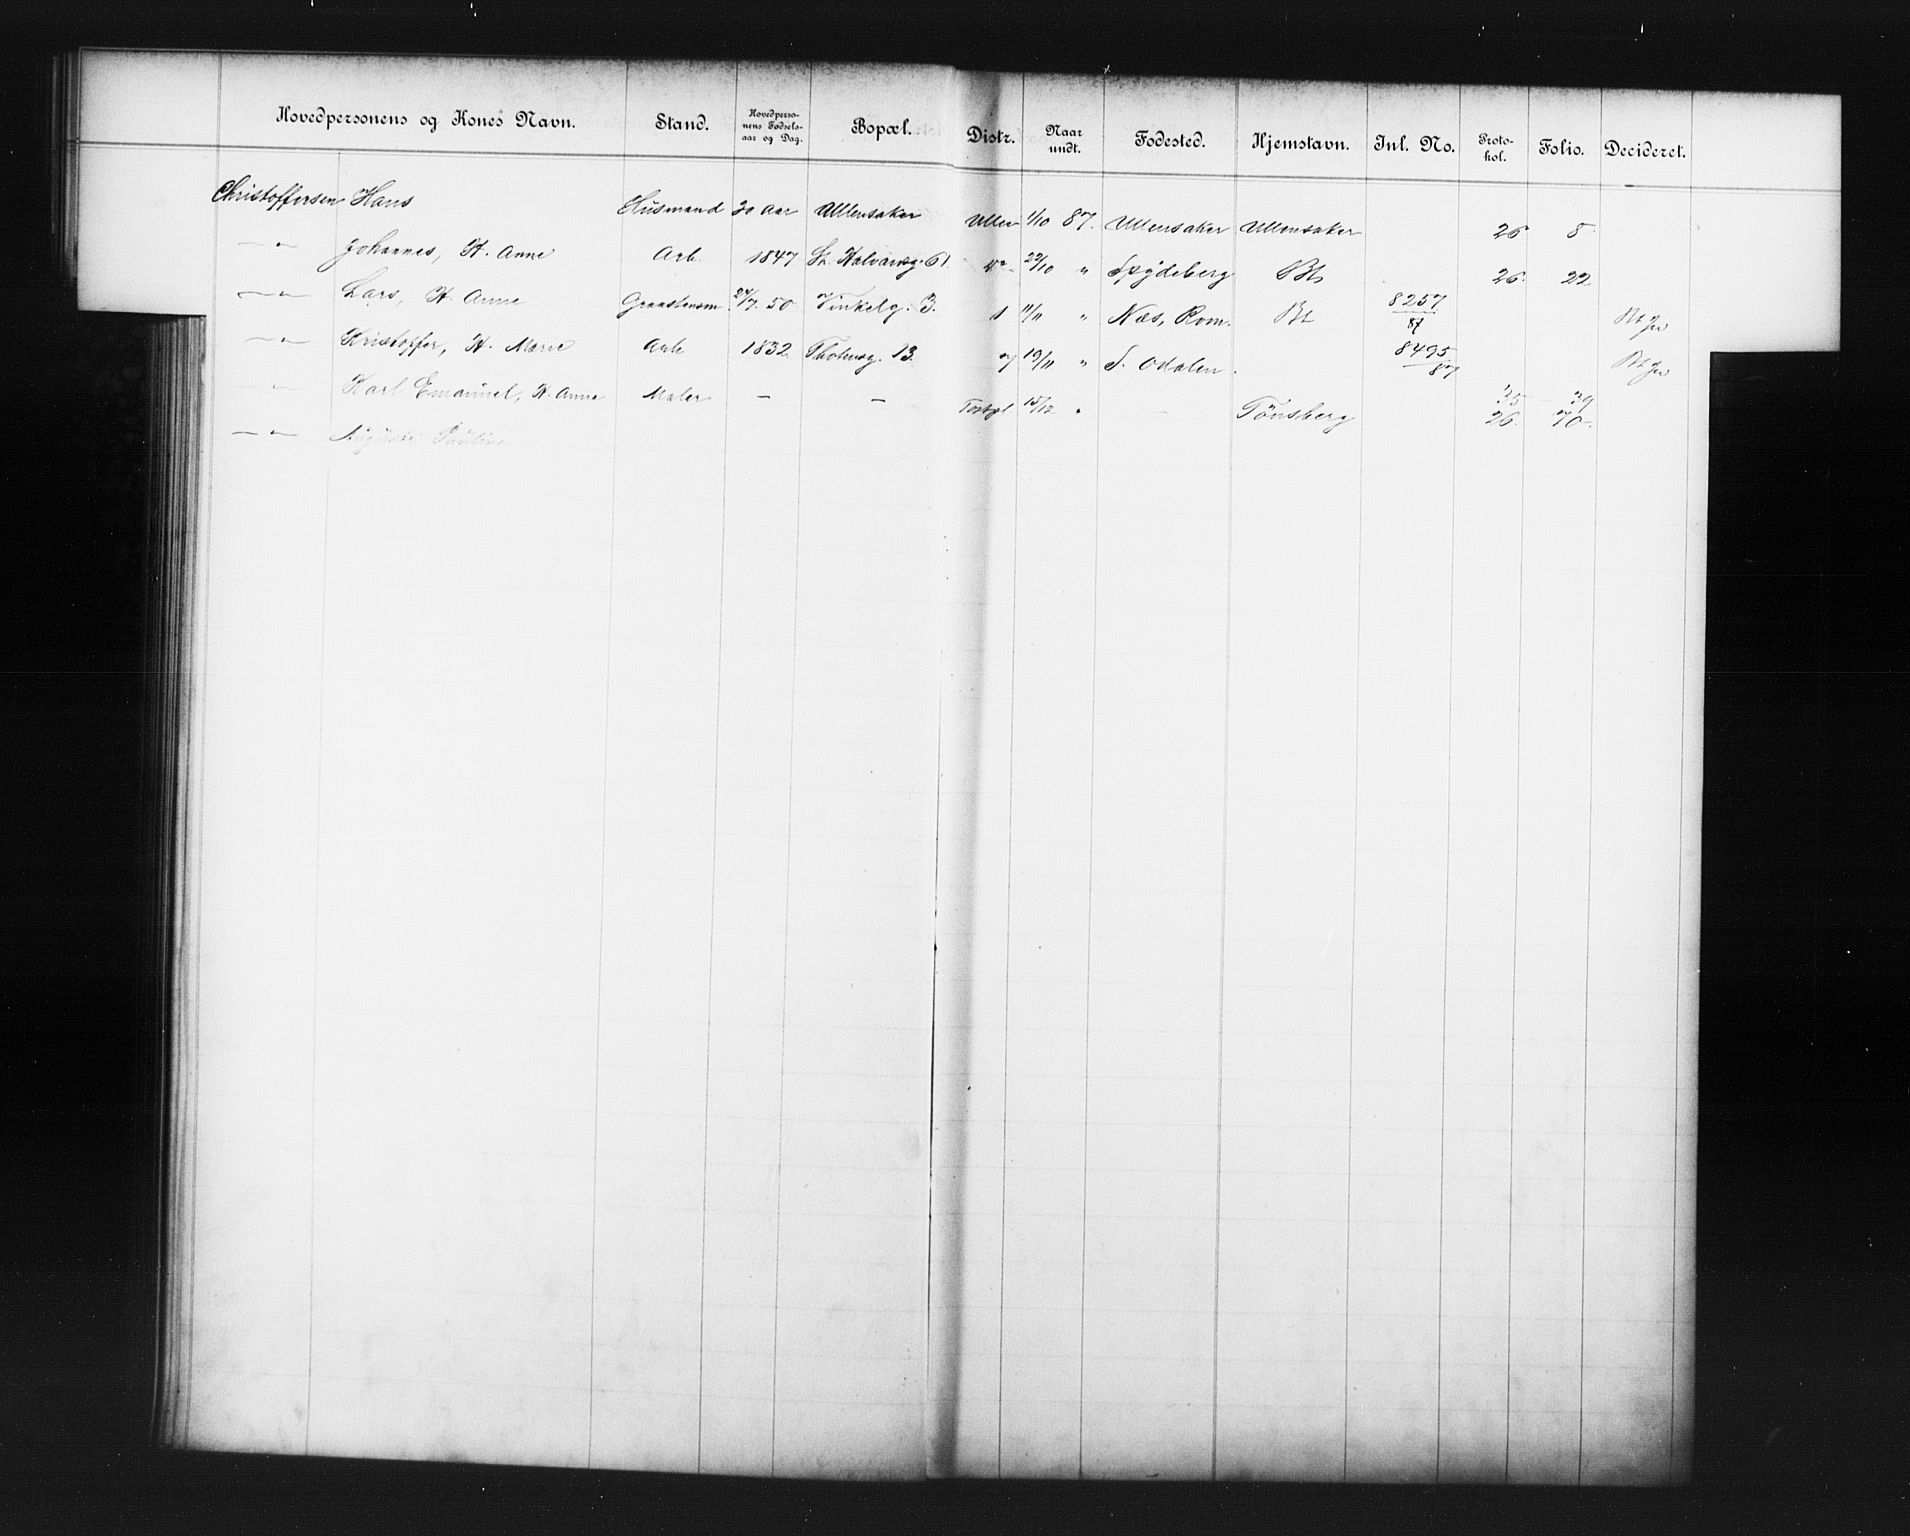 Hovedpersonens og Kones Navn. Stand. Hovedperso-nens Fødsels-aar og Dag. Bopæl. Distr. Naar undt. Fødested. Hjemstavn. Inl. No. Proto-kol. Folio. Decideret.
Christoffersen Hans Husmand 30 Aar Ullensaker Ullen 1/10 87. Ullensaker Ullensaker 26 8
—"— Johannes, H. Anne Arb. 1847 St. Halvardsg. 61 22/10 " Spydeberg 26. 22
—"— Lars, H. Anne 24/7. 50 Vinkelg. 3. 1 11/11 " Næs, Rom. Bt 8257/87
—"— Kristoffer, H. Marie Arb 1832 Thotensg. 13. 7 19/11 " S. Odalen. 8495/87
—"— Karl Emanuel, H. Anna Maler — — 15/12 " — Tønsberg 35 — 39 26. 70.
—"— Auguste Pauline